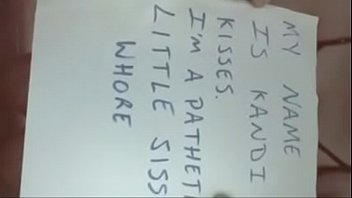 MY NAME
IS KANDI
KISSES.
I'M A PATHET
LITTLE SISS
WHORE